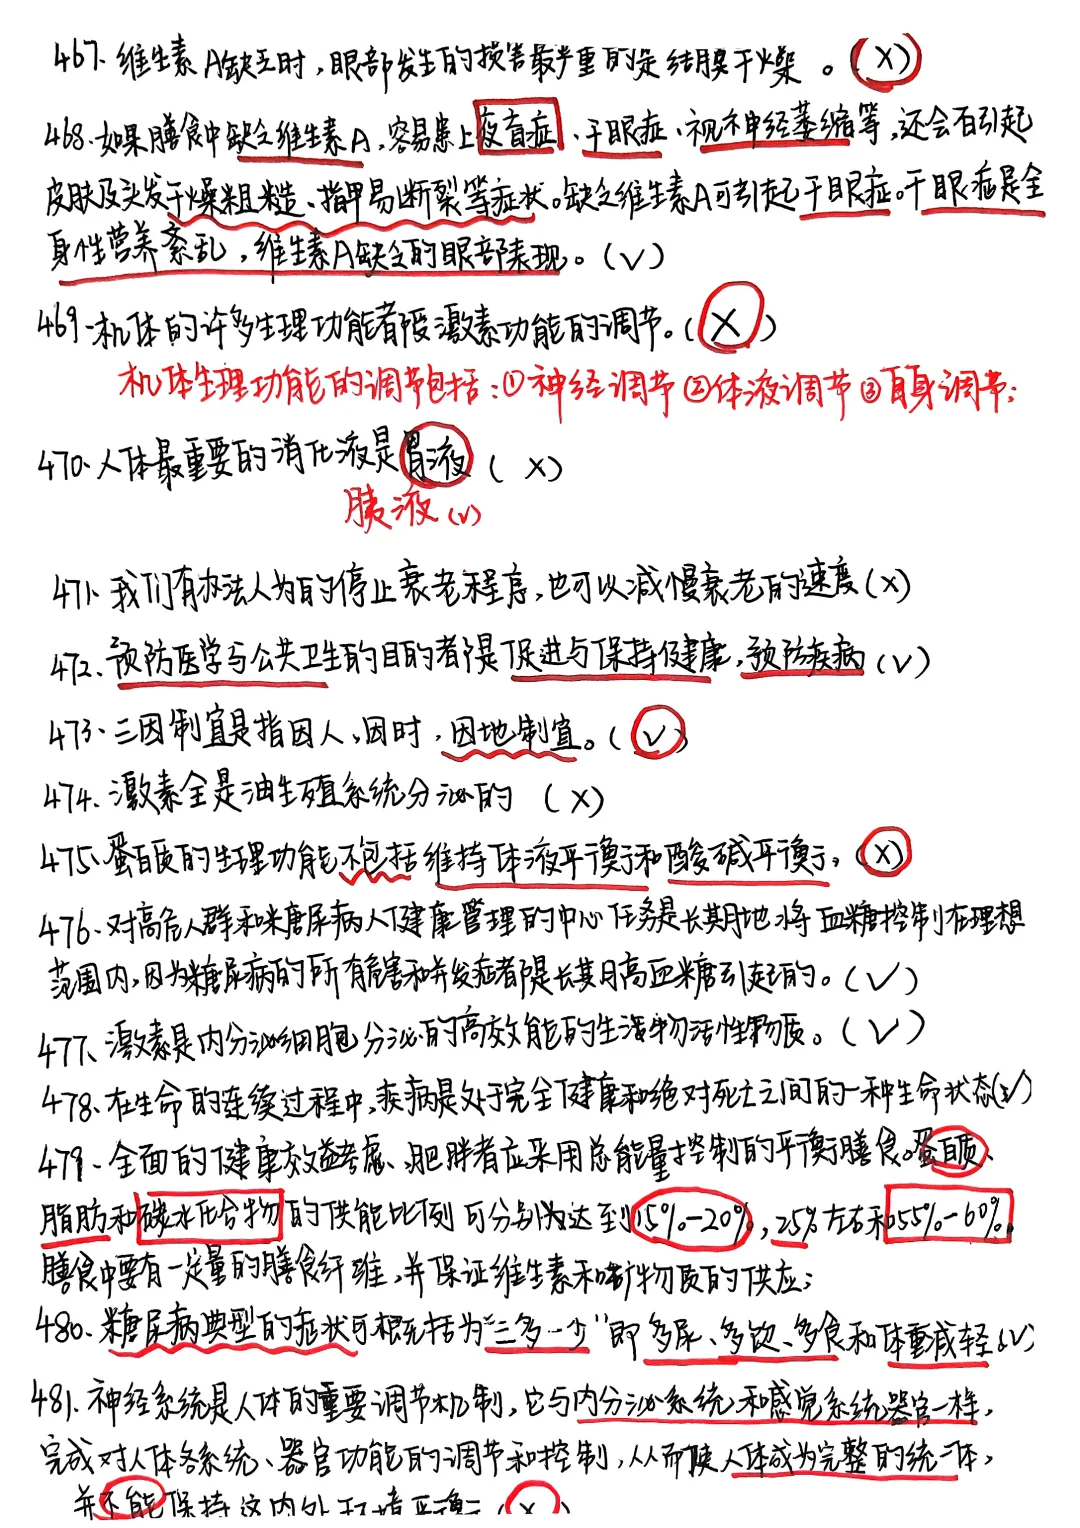 467、维生素A缺乏时，眼部发生的损害最严重的是结膜干燥。(X)
468、如果膳食中缺乏维生素A，容易患上夜盲症、干眼症、视神经萎缩等，还会引起
皮肤及头发干燥粗糙、指甲易断裂等症状。缺乏维生素A可引起干眼症。干眼症是全
身性营养紊乱，维生素A缺乏的眼部表现。(√)
469、机体的许多生理功能都受激素功能的调节。(X)
机体生理功能的调节包括：①神经调节②体液调节③自身调节；
470、人体最重要的消化液是胃液 (X)
胰液(√)
471、我们有办法人为的停止衰老程序，也可以减慢衰老的速度(X)
472、预防医学与公共卫生的目的都是促进与保持健康，预防疾病(√)
473、三因制宜是指因人，因时，因地制宜。(√)
474、激素全是油生殖系统分泌的 (X)
475、蛋白质的生理功能不包括维持体液平衡和酸碱平衡；(X)
476、对高危人群和糖尿病人健康管理的中心任务是长期地将血糖控制在理想
范围内，因为糖尿病的所有危害和并发症都是长期高血糖引起的。(√)
477、激素是内分泌细胞分泌的高效能的生活物活性物质。(√)
478、在生命的连续过程中，疾病是处于完全健康和绝对死亡之间的一种生命状态(√)
479、全面的健康效益考虑、肥胖者应采用总能量控制的平衡膳食。蛋白质、
脂肪和碳水化合物的供能比例可分别为达到15%-20%，25%左右和55%-60%。
膳食中要有一定量的膳食纤维，并保证维生素和矿物质的供应；
480、糖尿病典型的症状可概括为“三多一少”即多尿、多饮、多食和体重减轻(√)
481、神经系统是人体的重要调节机制，它与内分泌系统和感觉系统器官一样，
完成对人体各系统、器官功能的调节和控制，从而使人体成为完整的统一体，
并不能保持这内外环境平衡；(X)